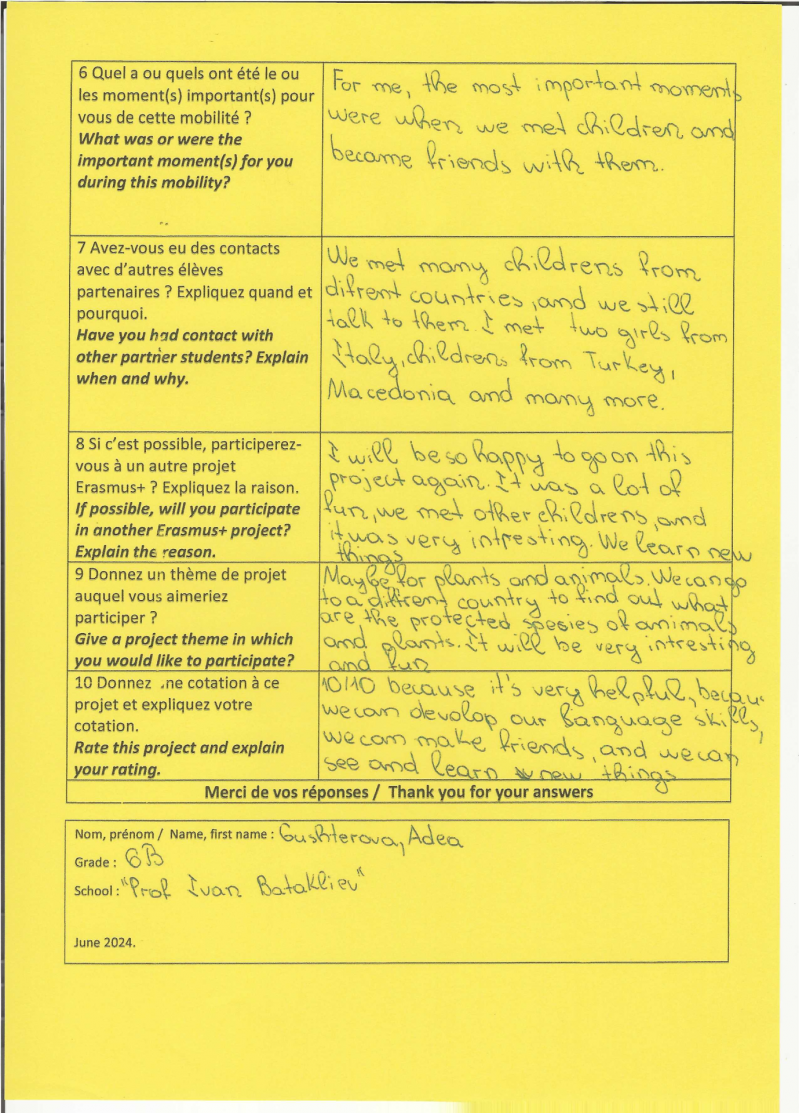 6 Quel a ou quels ont été le ou
les moment(s) important(s) pour
vous de cette mobilité ?
What was or were the
important moment(s) for you
during this mobility?
For me, the most important moments
were when we met children and
became friends with them.
7 Avez-vous eu des contacts
avec d'autres élèves
partenaires ? Expliquez quand et
pourquoi.
Have you had contact with
other partner students? Explain
when and why.
We met many childrens from
difrent countries, and we still
talk to them I met two girls from
Italy, childrens from Turkey,
Macedonia and many more.
8 Si c'est possible, participerez-
vous à un autre projet
Erasmus+ ? Expliquez la raison.
If possible, will you participate
in another Erasmus+ project?
Explain the reason.
I will be so happy to go on this
project again. It was a lot of
fun, we met other childrens, and
it was very intresting. We learn new
things
9 Donnez un thème de projet
auquel vous aimeriez
participer ?
Give a project theme in which
you would like to participate?
Maybe for plants and animals. We can go
to a country to find out what
are the protected spesies of animals
and plants. It will be very intresting
and fun
10 Donnez une cotation à ce
projet et expliquez votre
cotation.
Rate this project and explain
your rating.
10/10 because it's very helpful, becau
we can devolop our language skills,
we can make friends, and we can
see and learn new things
Merci de vos réponses / Thank you for your answers
Nom, prénom / Name, first name : Gushterova, Adea
Grade : 6B
School : "Prof Ivan Batakliev"
June 2024.